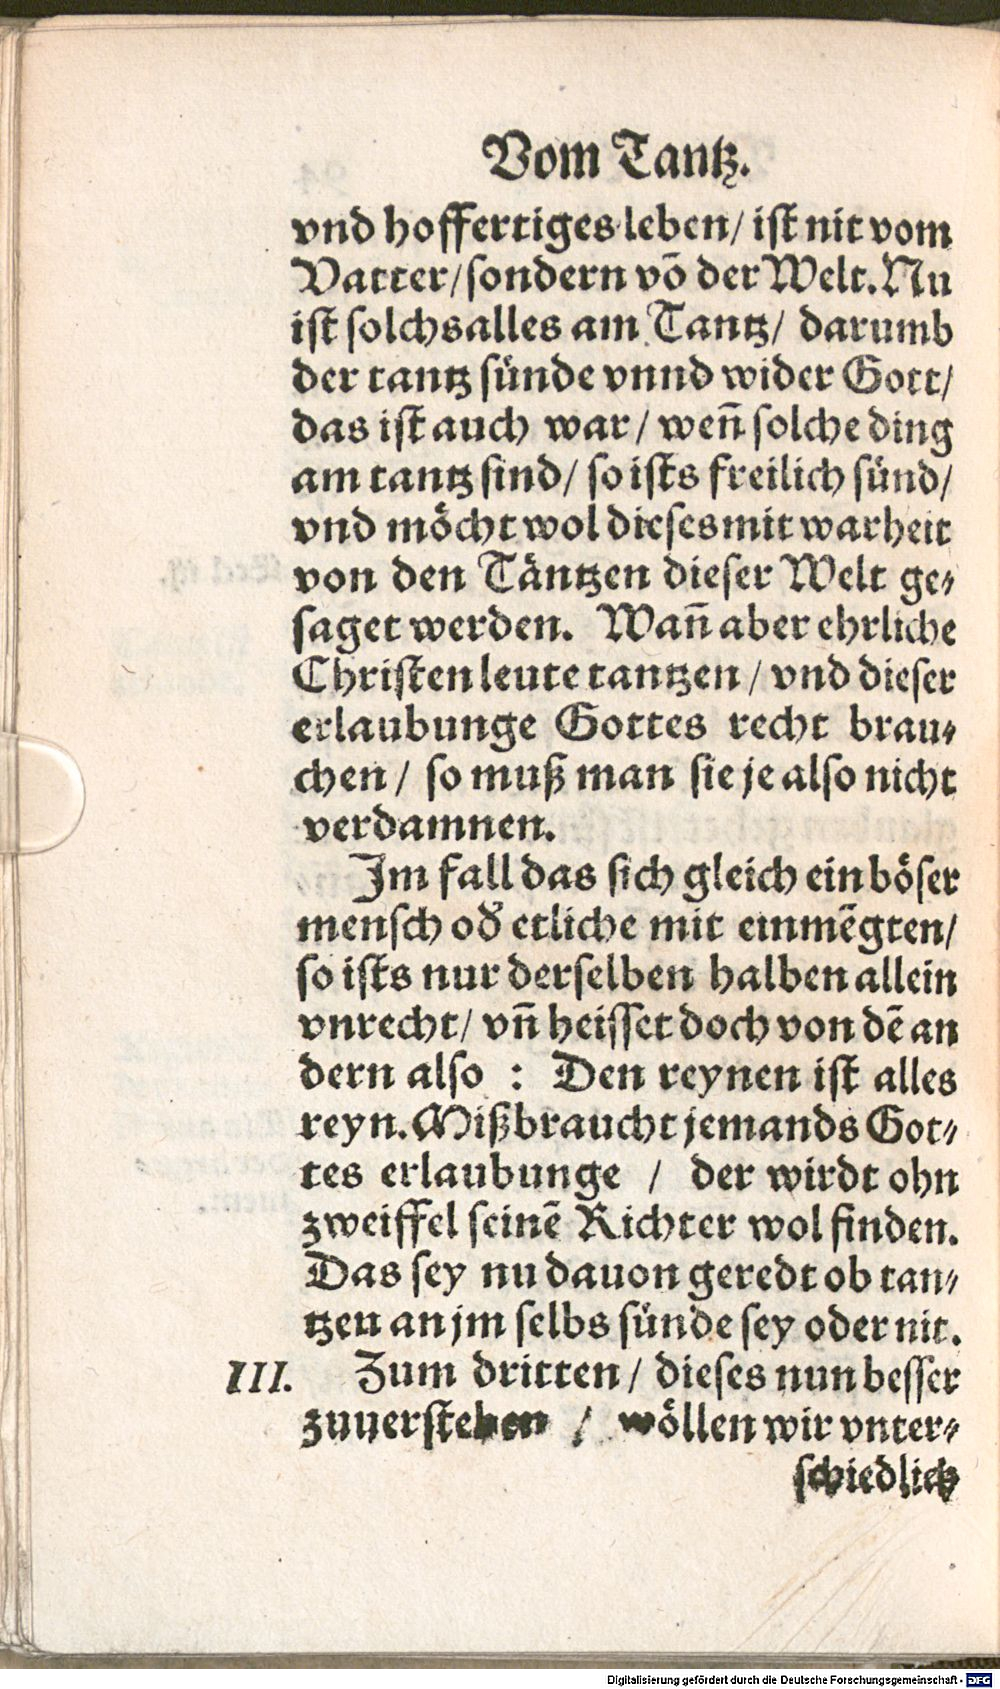 Vom Tantz.
vnd hoffertiges leben/ ist nit vom
Vatter/sondern võ der Welt. Nu
ist solchs alles am Tantz/ darumb
der tantz sünde vnnd wider Gott/
das ist auch war/ weñ solche ding
am tantz sind/ so ists freilich sünd/
vnd möcht wol dieses mit warheit
von den Täntzen dieser Welt ge-
saget werden. Wañ aber ehrliche
Christen leute tantzen/ vnd dieser
erlaubunge Gottes recht brau-
chen/ so muß man sie je also nicht
verdamnen.
Im fall das sich gleich ein böser
mensch od' etliche mit einmẽgten/
so ists nur derselben halben allein
vnrecht/ vñ heisset doch von dẽ an
dern also : Den reynen ist alles
reyn. Mißbraucht jemands Got-
tes erlaubunge / der wirdt ohn
zweiffel seinẽ Richter wol finden.
Das sey nu dauon geredt ob tan-
tzen an jm selbs sünde sey oder nit.
III. Zum dritten/ dieses nun besser
zuuerstehen / wöllen wir vnter-
schiedlich
Digitalisierung gefördert durch die Deutsche Forschungsgemeinschaft - DFG